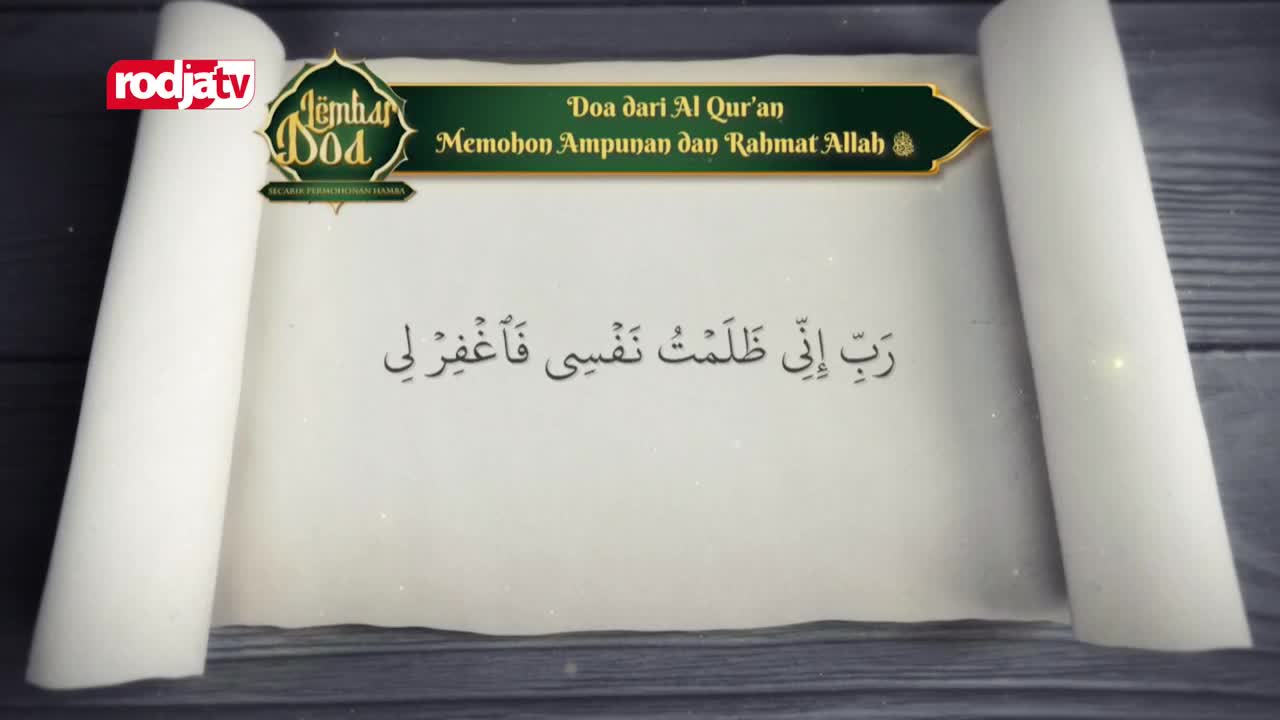 rodjatv
Lëmbar
Doa
SECARIK PERMOHONAN HAMBA
Doa dari Al Qur'an
Memohon Ampunan dan Rahmat Allah ﷻ
رَبِّ إِنِّى ظَلَمۡتُ نَفۡسِى فَٱغۡفِرۡ لِى